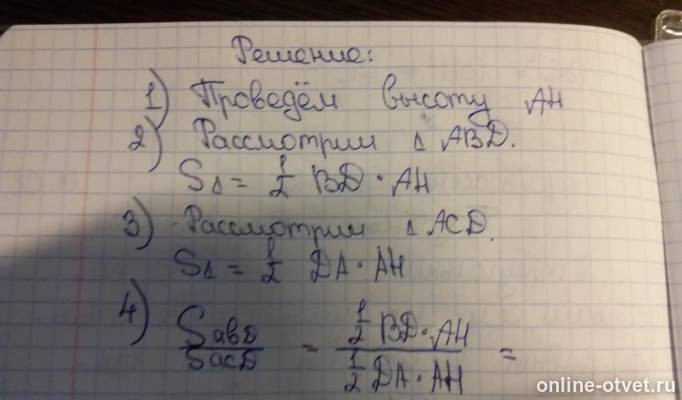 Решение:
1) Проведём высоту AH
2) Рассмотрим △ ABD.
S△ = 1/2 BD · AH
3) Рассмотрим △ ACD.
S△ = 1/2 DA · AH
4) SABD/SACD = 1/2 BD · AH / 1/2 DA · AH =
online-otvet.ru